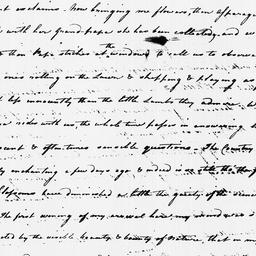 exclaims. Now bringing me flowers, then
with her Grandpapa she has been collecting, and
than Papa stretches at the windows to call us to observe
ones rolling on the lawn & skipping & playing as
life innocently than the little lambs they admire
rides with us, the whole time passes in answering
& oftentimes sensible questions. The Country
enchanting a few days ago & indeed is
blossoms have diminished a little the gaiety of the
the first evening of my arrival here my mind was
by the visible beauty & bounty of Nature, that